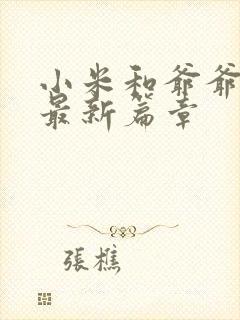 小米和爷爷
最新篇章
張樵